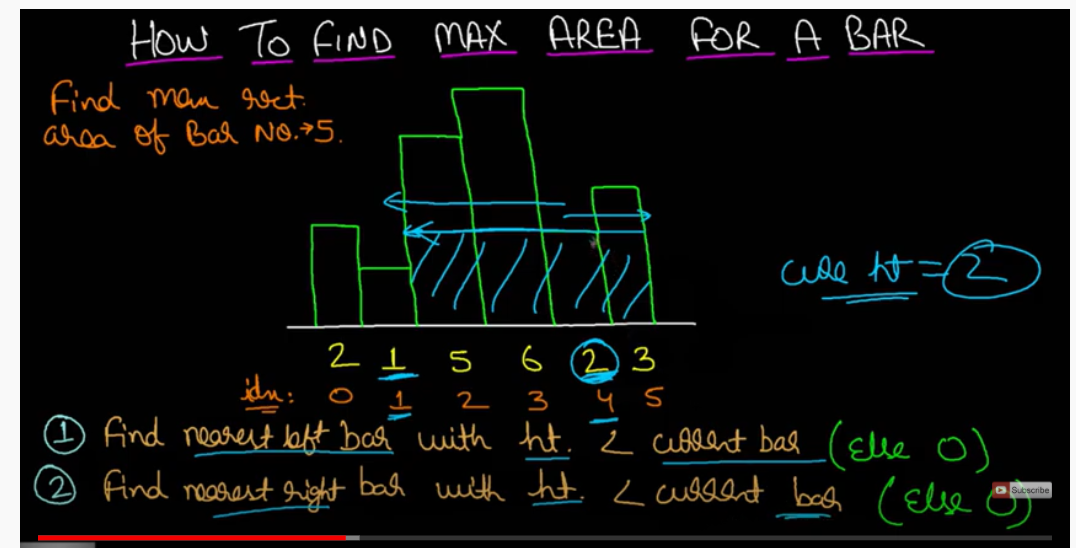 HOW TO FIND MAX AREA FOR A BAR
Find max rect.
area of Bar No.→5.
curr ht = 2
2 1 5 6 2 3
idx: 0 1 2 3 4 5
① find nearest left bar with ht. < current bar (Else 0)
② find nearest right bar with ht. < current bar (Else 0)
Subscribe